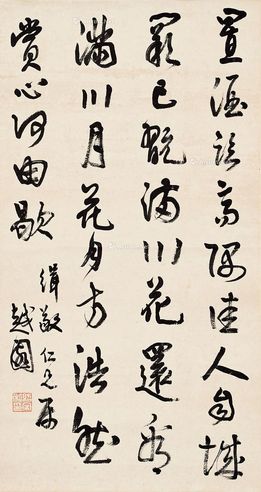 置酒臨高隅佳人自城
闕已翫滿川花還看
滿川月花月方浩然
賞心何由歇
緝敬仁兄屬
越園